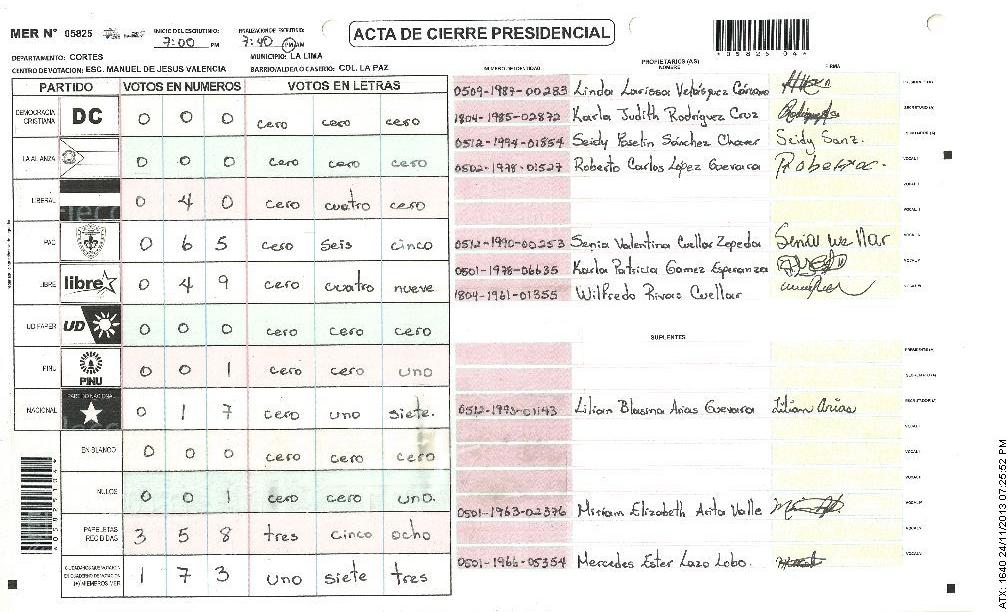 MER N° 05825
INICIO DEL ESCRUTINIO:
7:00 PM
FINALIZACION DE ESCRUTINIO:
7:40 PM AM
ACTA DE CIERRE PRESIDENCIAL
05825 04
DEPARTAMENTO: CORTES
MUNICIPIO: LA LIMA
CENTRO DE VOTACION: ESC. MANUEL DE JESUS VALENCIA
BARRIO/ALDEA O CASERIO: COL. LA PAZ
PARTIDO VOTOS EN NUMEROS VOTOS EN LETRAS
DEMOCRACIA CRISTIANA DC 0 0 0 cero cero cero
LA ALIANZA 0 0 0 cero cero cero
LIBERAL 0 4 0 cero cuatro cero
PAC 0 6 5 cero seis cinco
LIBRE libre 0 4 9 cero cuatro nueve
UD FAPER UD 0 0 0 cero cero cero
PINU PINU 0 0 1 cero cero uno
NACIONAL PARTIDO NACIONAL 0 1 7 cero uno siete.
EN BLANCO 0 0 0 cero cero cero
NULOS 0 0 1 cero cero uno.
PAPELETAS RECIBIDAS 3 5 8 tres cinco ocho
CIUDADANOS QUE VOTARON EN CUADERNO DE VOTACION (+) MIEMBROS MER 1 7 3 uno siete tres
PROPIETARIOS (AS)
NUMERO DE IDENTIDAD NOMBRE FIRMA
0509-1987-00283 Linda Larissa Velásquez
1804-1985-02872 Karla Judith Rodriguez Cruz
0512-1994-01854 Seidy Sánchez Seidy Sanz.
0502-1978-01527 Roberto Carlos Lopez Guevara
0512-1990-00253 Senia Valentina Cuellar Zepeda
0501-1978-06635 Karla Patricia Gomez Esperanza
1804-1961-01355 Wilfredo Rivas Cuellar
SUPLENTES
0512-1993-01143 Lilian Arias Guevara Lilian Arias
0501-1963-02376 Miriam Elizabeth Arita Valle
0501-1966-05354 Mercedes Ester Lazo Lobo.
ATX: 1640.24/11/2013 07:25:52 PM